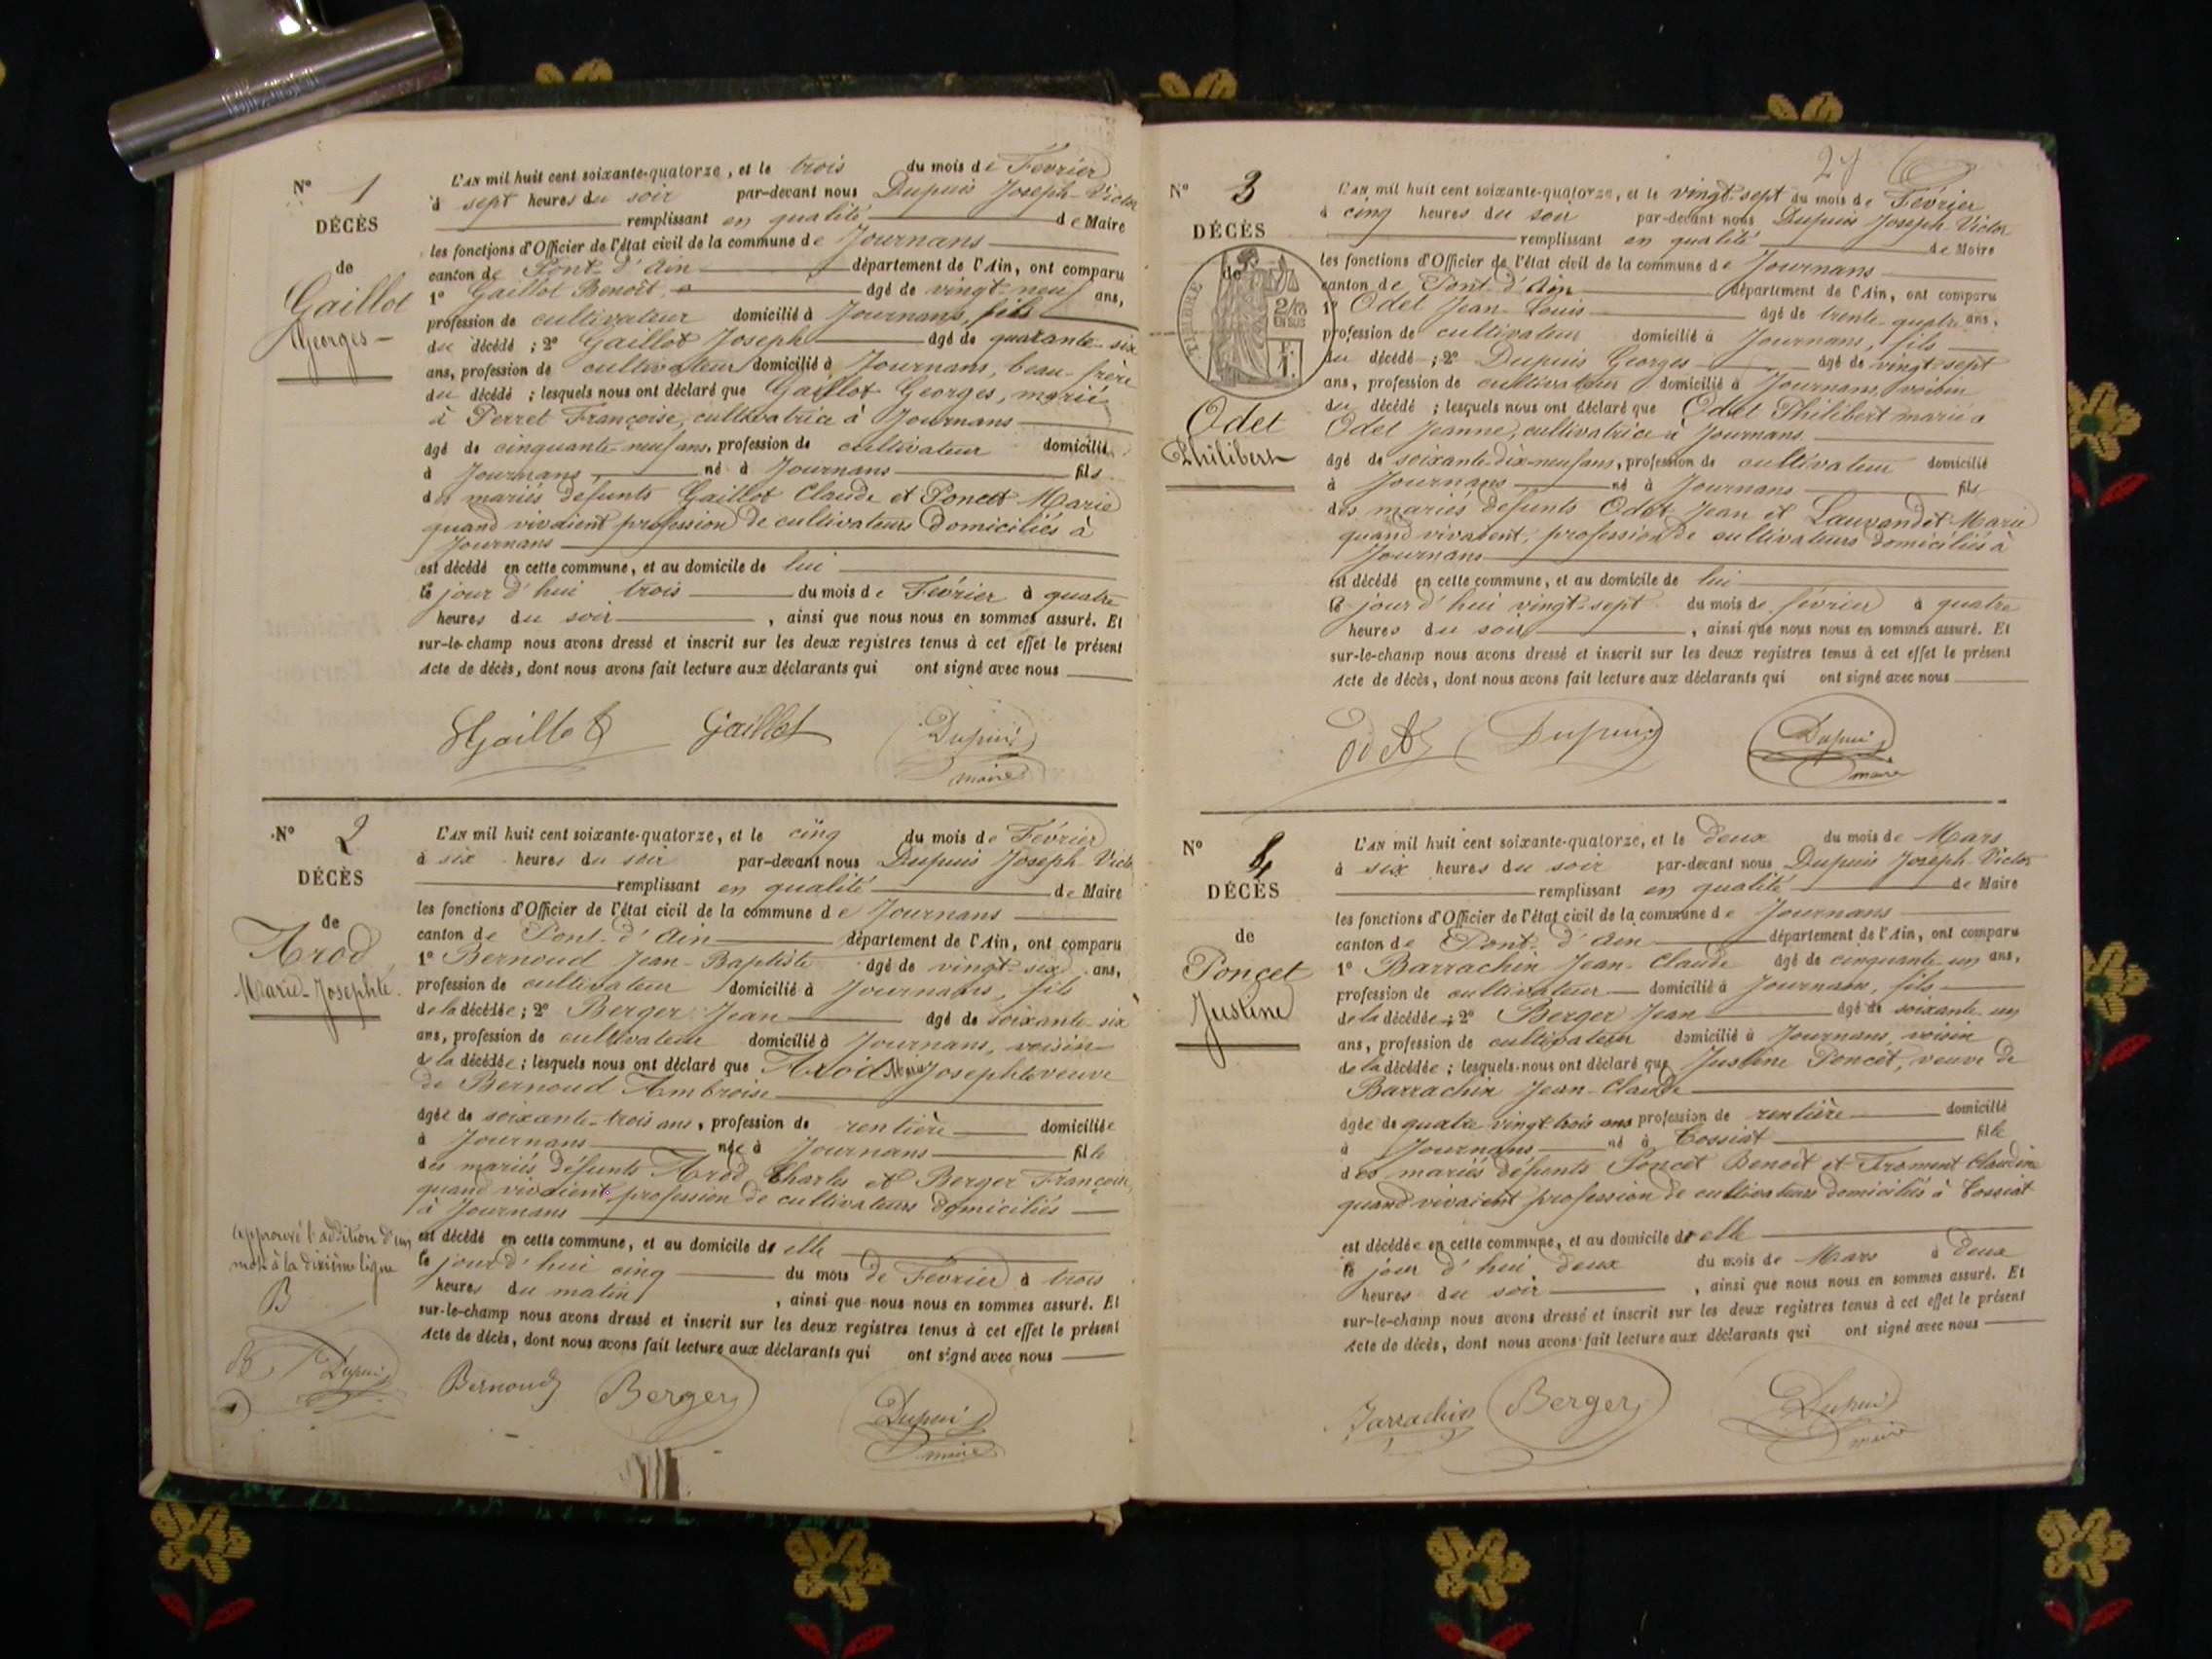 N° 1
DÉCÈS
de
Gaillot
Georges
L'AN mil huit cent soixante-quatorze, et le trois du mois de Fevrier
à sept heures du soir par-devant nous Dupuis Joseph-Victor
remplissant en qualité de Maire
les fonctions d'Officier de l'état civil de la commune de Journans
canton de Pont-d'Ain département de l'Ain, ont comparu
1° Gaillot Benoît, âgé de vingt neuf ans,
profession de cultivateur domicilié à Journans, fils
du décédé ; 2° Gaillot Joseph âgé de quarante-six
ans, profession de cultivateur domicilié à Journans, beau-frère
du décédé ; lesquels nous ont déclaré que Gaillot Georges, marié
à Perret Françoise, cultivatrice à Journans
âgé de cinquante-neuf ans, profession de cultivateur domicilié
à Journans, né à Journans fils
des mariés defunts Gaillot Claude et Poncet Marie
quand vivaient profession de cultivateurs domiciliés à
Journans
est décédé en cette commune, et au domicile de lui
le jour d'hui trois du mois de Février à quatre
heures du soir , ainsi que nous nous en sommes assuré. Et
sur-le-champ nous avons dressé et inscrit sur les deux registres tenus à cet effet le présent
Acte de décès, dont nous avons fait lecture aux déclarants qui ont signé avec nous
Gaillot Gaillot Dupuis
maire
N° 2
DÉCÈS
de
Arod
Marie-Josephte
L'AN mil huit cent soixante-quatorze, et le cinq du mois de Février
à six heures du soir par-devant nous Dupuis Joseph-Victor
remplissant en qualité de Maire
les fonctions d'Officier de l'état civil de la commune de Journans
canton de Pont-d'Ain département de l'Ain, ont comparu
1° Bernoud Jean-Baptiste âgé de vingt-six ans,
profession de cultivateur domicilié à Journans, fils
de la décédée ; 2° Berger Jean âgé de soixante-six
ans, profession de cultivateur domicilié à Journans, voisin
de la décédée ; lesquels nous ont déclaré que Arod Marie Josephte veuve
de Bernoud Ambroise
âgée de soixante-trois ans, profession de rentière domiciliée
à Journans née à Journans fille
des mariés défunts Arod Charles et Berger Françoise
quand vivaient profession de cultivateurs domiciliés
à Journans
est décédé en cette commune, et au domicile de elle
le jour d'hui cinq du mois de Fevrier à trois
heures du matin , ainsi que nous nous en sommes assuré. Et
sur-le-champ nous avons dressé et inscrit sur les deux registres tenus à cet effet le présent
Acte de décès, dont nous avons fait lecture aux déclarants qui ont signé avec nous
approuvé l'addition d'un
mot à la dixième ligne
B
B Dupuis
Bernoud Berger Dupuis
maire
27
N° 3
DÉCÈS
de
TIMBRE
Odet
Philibert
L'AN mil huit cent soixante-quatorze, et le vingt-sept du mois de Février
à cinq heures du soir par-devant nous Dupuis Joseph Victor
remplissant en qualité de Maire
les fonctions d'Officier de l'état civil de la commune de Journans
canton de Pont-d'Ain département de l'Ain, ont comparu
1° Odet Jean-Louis âgé de trente-quatre ans,
profession de cultivateur domicilié à Journans, fils
du décédé ; 2° Dupuis Georges âgé de vingt-sept
ans, profession de cultivateur domicilié à Journans, voisin
du décédé ; lesquels nous ont déclaré que Odet Philibert marié a
Odet Jeanne, cultivatrice à Journans
âgé de soixante-dix-neuf ans, profession de cultivateur domicilié
à Journans né à Journans fils
des mariés defunts Odet Jean et Marie
quand vivaient, profession de cultivateurs domiciliés à
Journans
est décédé en cette commune, et au domicile de lui
le jour d'hui vingt-sept du mois de février à quatre
heures du soir , ainsi que nous nous en sommes assuré. Et
sur-le-champ nous avons dressé et inscrit sur les deux registres tenus à cet effet le présent
Acte de décès, dont nous avons fait lecture aux déclarants qui ont signé avec nous
Odet Dupuis Dupuis
maire
N° 4
DÉCÈS
de
Poncet
Justine
L'AN mil huit cent soixante-quatorze, et le deux du mois de Mars
à six heures du soir par-devant nous Dupuis Joseph-Victor
remplissant en qualité de Maire
les fonctions d'Officier de l'état civil de la commune de Journans
canton de Pont-d'Ain département de l'Ain, ont comparu
1° Barrachin Jean-Claude âgé de cinquante un ans,
profession de cultivateur domicilié à Journans, fils
de la décédée ; 2° Berger Jean âgé de soixante-un
ans, profession de cultivateur domicilié à Journans, voisin
de la décédée ; lesquels nous ont déclaré que Justine Poncet, veuve de
Barrachin Jean-Claude
âgée de quatre vingt trois ans profession de rentière domicilié
à Journans né à Tossiat fille
des mariés défunts Poncet Benoît et Froment Claudine
quand vivaient profession de cultivateurs domiciliés à Tossiat
est décédée en cette commune, et au domicile de elle
le jour d'hui deux du mois de Mars à deux
heures du soir , ainsi que nous nous en sommes assuré. Et
sur-le-champ nous avons dressé et inscrit sur les deux registres tenus à cet effet le présent
Acte de décès, dont nous avons fait lecture aux déclarants qui ont signé avec nous
Barrachin Berger Dupuis
maire